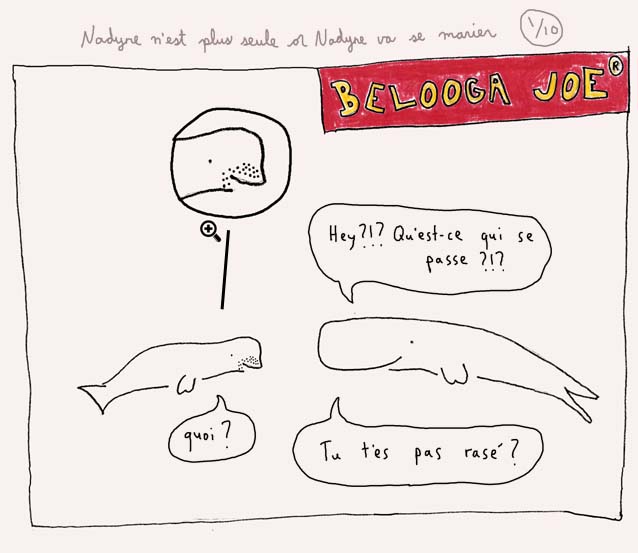 Nadyne n'est plus seule or Nadyne va se marier 1/10
BELOOGA JOE®
Hey?!? Qu'est-ce qui se
passe ?!?
quoi ?
Tu t'es pas rasé ?